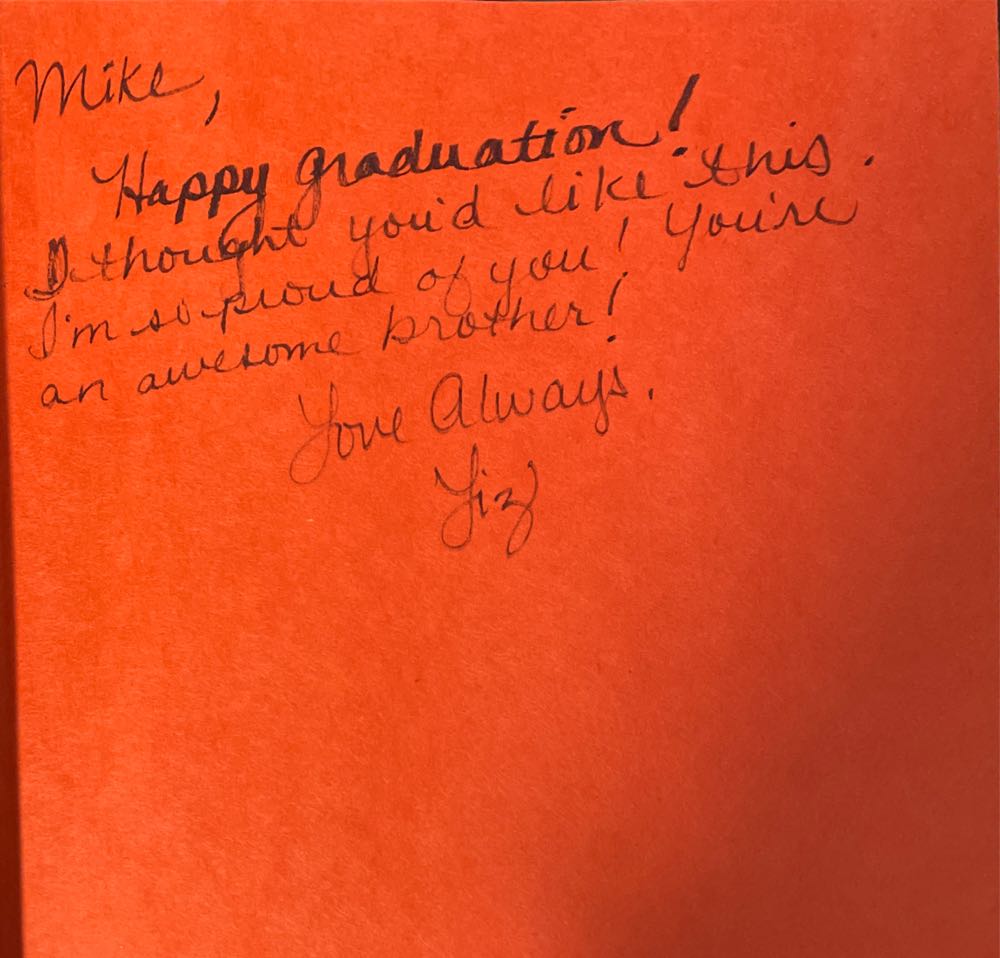 Mike,
Happy graduation!
I thought you'd like this.
I'm so proud of you! You're
an awesome brother!
Love Always.
Liz